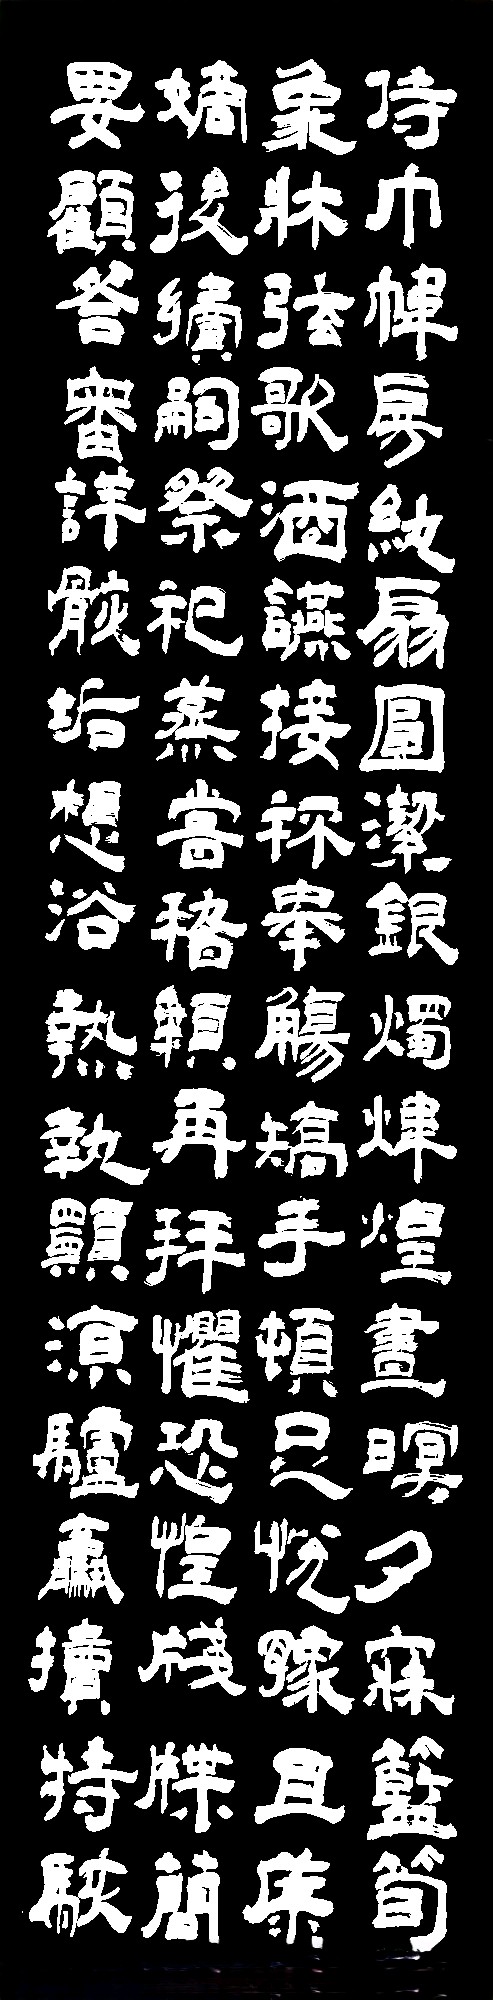 侍巾帷房紈扇圓潔銀燭煒煌晝暝夕寐籃筍
象牀弦歌酒讌接杯奉觴矯手頓足悅豫且康
嫡後續嗣祭祀蒸嘗稽顙再拜懼恐惶牋牒簡
要顧答審詳骸垢想浴熱執願涼驢驘犢特駭